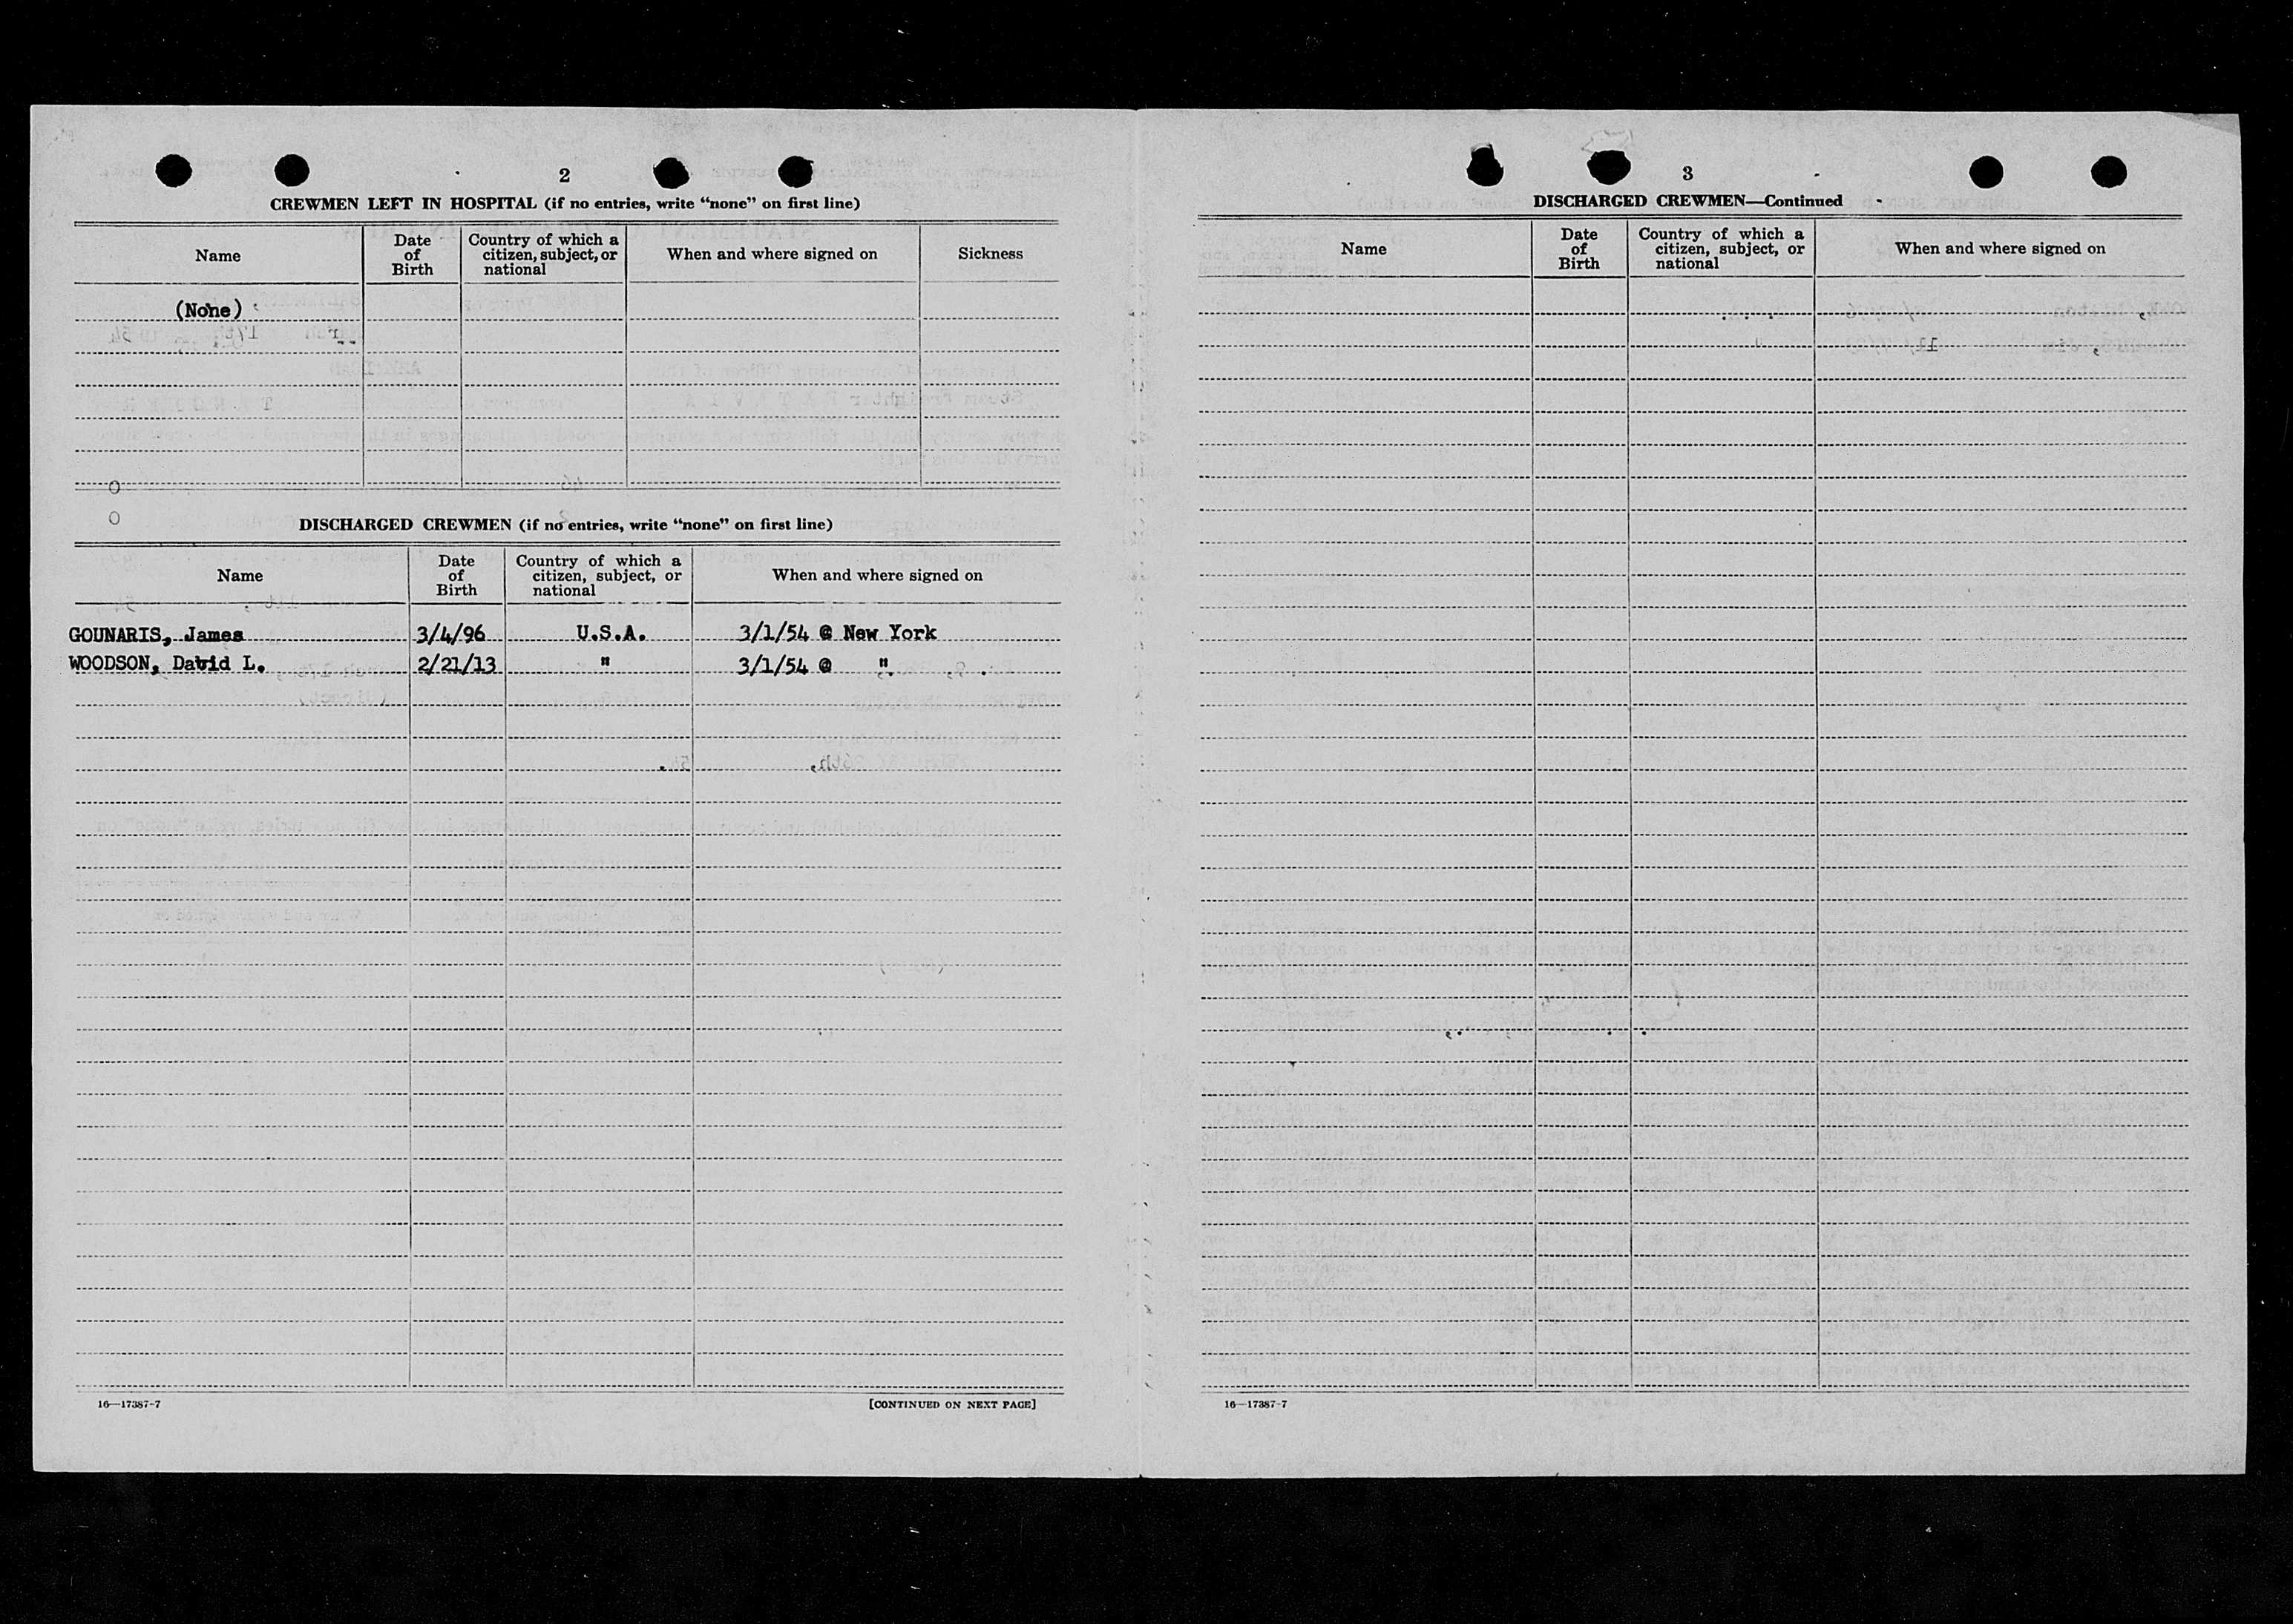 2
CREWMEN LEFT IN HOSPITAL (if no entries, write “none” on first line)
Name
Date of Birth
Country of which a citizen, subject, or national
When and where signed on
Sickness
(None)
DISCHARGED CREWMEN (if no entries, write “none” on first line)
Name
Date of Birth
Country of which a citizen, subject, or national
When and where signed on
GOUNARIS, James 3/4/96 U.S.A. 3/1/54 @ New York
WOODSON, David L. 2/21/13 " 3/1/54 @ "
16—17387-7
[CONTINUED ON NEXT PAGE]
3
DISCHARGED CREWMEN—Continued
Name
Date of Birth
Country of which a citizen, subject, or national
When and where signed on
16—17387-7